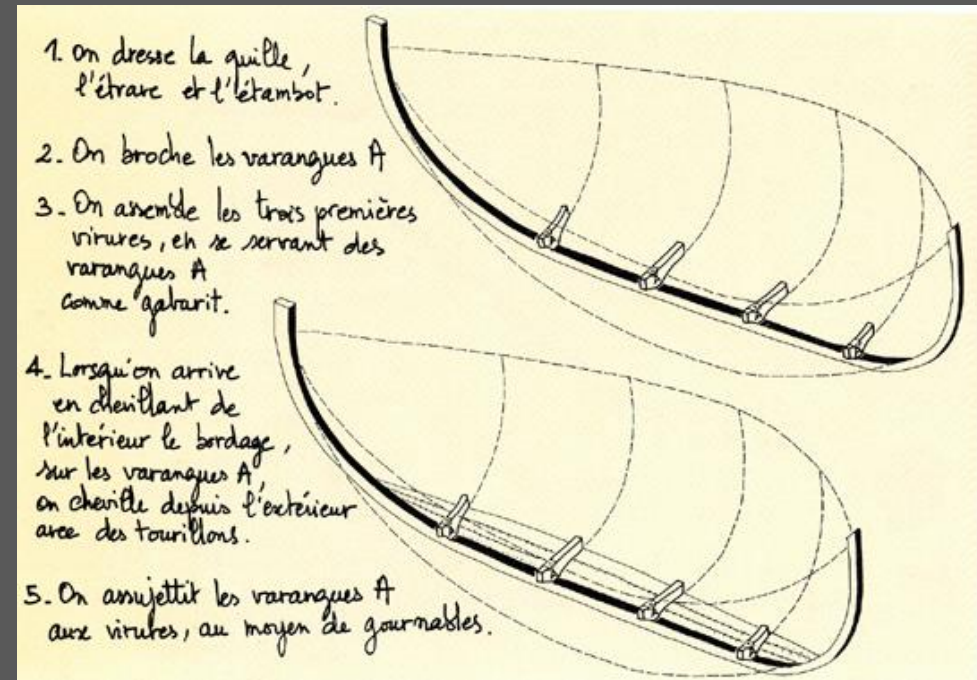 1. On dresse la quille,
l'étrave et l'étambot.
2_ On broche les varangues A
3_ On assemble les trois premières
virures, en se servant des
varangues A
comme gabarit.
4_ Lorsqu'on arrive
en chevillant de
l'intérieur le bordage,
sur les varangues A,
on cheville depuis l'extérieur
avec des tourillons.
5_ On assujettit les varangues A
aux virures, au moyen de gournables.